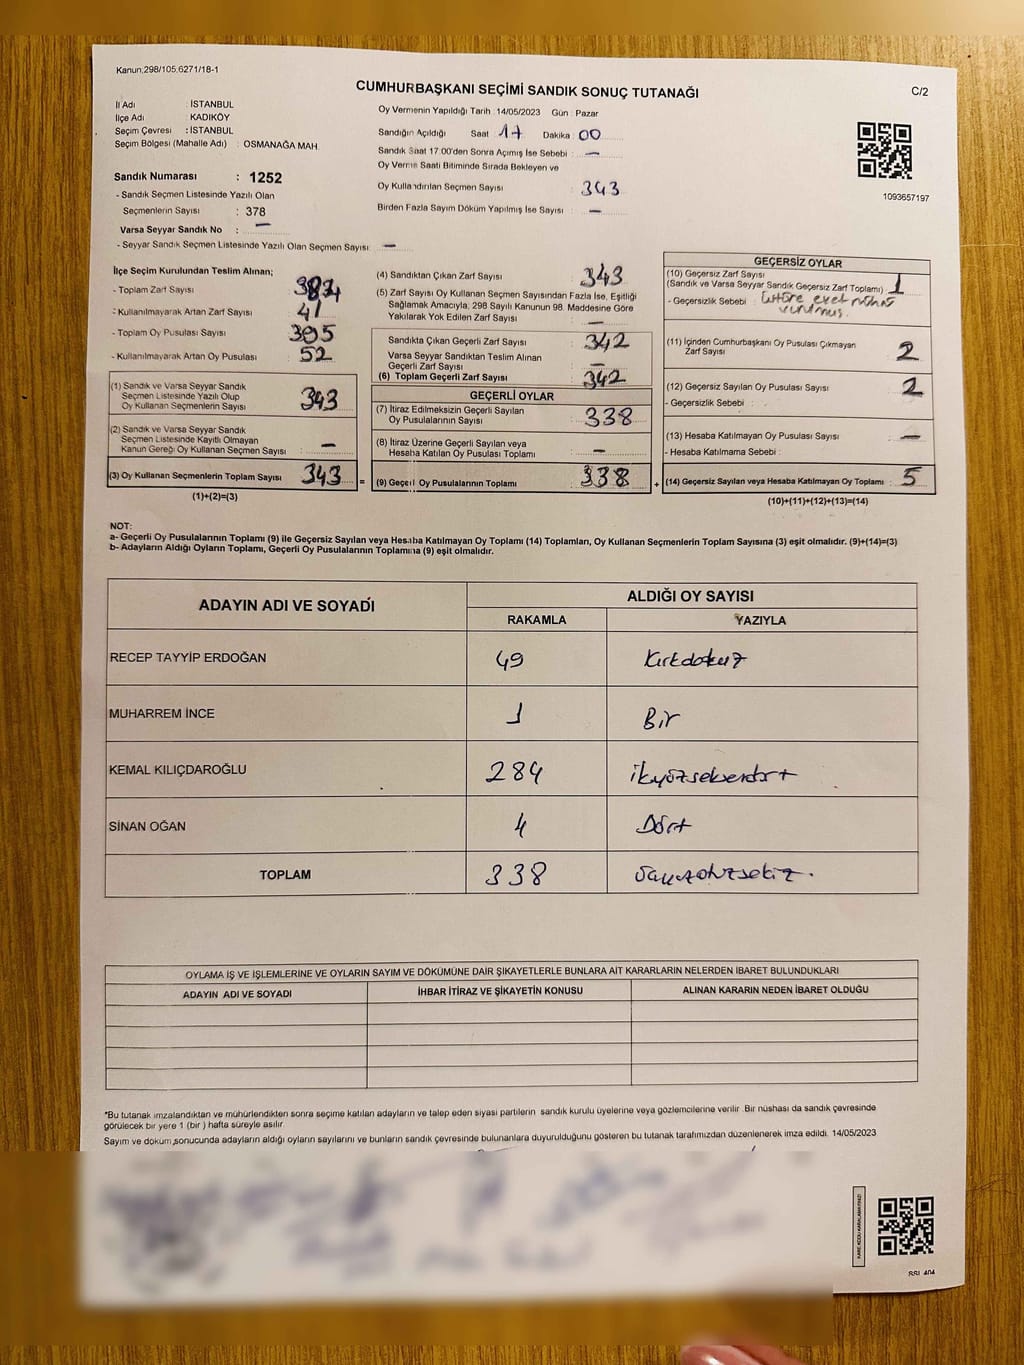 Kanun,298/105,6271/18-1
CUMHURBAŞKANI SEÇİMİ SANDIK SONUÇ TUTANAĞI
C/2
İl Adı : İSTANBUL
İlçe Adı : KADIKÖY
Seçim Çevresi : İSTANBUL
Seçim Bölgesi (Mahalle Adı) : OSMANAĞA MAH.
Sandık Numarası : 1252
- Sandık Seçmen Listesinde Yazılı Olan
Seçmenlerin Sayısı : 378
Varsa Seyyar Sandık No : —
- Seyyar Sandık Seçmen Listesinde Yazılı Olan Seçmen Sayısı : —
Oy Vermenin Yapıldığı Tarih :14/05/2023 Gün : Pazar
Sandığın Açıldığı Saat : 17 Dakika : 00
Sandık Saat 17.00'den Sonra Açımış İse Sebebi : —
Oy Verme Saati Bitiminde Sırada Bekleyen ve
Oy Kullandırılan Seçmen Sayısı : 343
Birden Fazla Sayım Döküm Yapılmış İse Sayısı : —
1093657197
İlçe Seçim Kurulundan Teslim Alınan;
- Toplam Zarf Sayısı
- Kullanılmayarak Artan Zarf Sayısı : 41
- Toplam Oy Pusulası Sayısı : 395
- Kullanılmayarak Artan Oy Pusulası : 52
(1) Sandık ve Varsa Seyyar Sandık
Seçmen Listesinde Yazılı Olup
Oy Kullanan Seçmenlerin Sayısı : 343
(2) Sandık ve Varsa Seyyar Sandık
Seçmen Listesinde Kayıtlı Olmayan
Kanun Gereği Oy Kullanan Seçmen Sayısı : —
(3) Oy Kullanan Seçmenlerin Toplam Sayısı : 343 =
(1)+(2)=(3)
(4) Sandıktan Çıkan Zarf Sayısı : 343
(5) Zarf Sayısı Oy Kullanan Seçmen Sayısından Fazla İse, Eşitliği
Sağlamak Amacıyla, 298 Sayılı Kanunun 98. Maddesine Göre
Yakılarak Yok Edilen Zarf Sayısı : —
Sandıkta Çıkan Geçerli Zarf Sayısı : 342
Varsa Seyyar Sandıktan Teslim Alınan
Geçerli Zarf Sayısı : —
(6) Toplam Geçerli Zarf Sayısı : 342
GEÇERLİ OYLAR
(7) İtiraz Edilmeksizin Geçerli Sayılan
Oy Pusulalarının Sayısı : 338
(8) İtiraz Üzerine Geçerli Sayılan veya
Hesaba Katılan Oy Pusulası Toplamı : —
(9) Geçerli Oy Pusulalarının Toplamı : 338 +
GEÇERSİZ OYLAR
(10) Geçersiz Zarf Sayısı
(Sandık ve Varsa Seyyar Sandık Geçersiz Zarf Toplamı) : 1
- Geçersizlik Sebebi : üstüne evet mührü
vurulmuş.
(11) İçinden Cumhurbaşkanı Oy Pusulası Çıkmayan
Zarf Sayısı : 2
(12) Geçersiz Sayılan Oy Pusulası Sayısı : 2
- Geçersizlik Sebebi :
(13) Hesaba Katılmayan Oy Pusulası Sayısı : —
- Hesaba Katılmama Sebebi :
(14) Geçersiz Sayılan veya Hesaba Katılmayan Oy Toplamı : 5
(10)+(11)+(12)+(13)=(14)
NOT:
a- Geçerli Oy Pusulalarının Toplamı (9) ile Geçersiz Sayılan veya Hesaba Katılmayan Oy Toplamı (14) Toplamları, Oy Kullanan Seçmenlerin Toplam Sayısına (3) eşit olmalıdır. (9)+(14)=(3)
b- Adayların Aldığı Oyların Toplamı, Geçerli Oy Pusulalarının Toplamına (9) eşit olmalıdır.
ADAYIN ADI VE SOYADI
ALDIĞI OY SAYISI
RAKAMLA YAZIYLA
RECEP TAYYİP ERDOĞAN 49 Kırkdokuz
MUHARREM İNCE 1 Bir
KEMAL KILIÇDAROĞLU 284 ikiyüzseksendört
SİNAN OĞAN 4 Dört
TOPLAM 338
OYLAMA İŞ VE İŞLEMLERİNE VE OYLARIN SAYIM VE DÖKÜMÜNE DAİR ŞİKAYETLERLE BUNLARA AİT KARARLARIN NELERDEN İBARET BULUNDUKLARI
ADAYIN ADI VE SOYADI İHBAR İTİRAZ VE ŞİKAYETİN KONUSU ALINAN KARARIN NEDEN İBARET OLDUĞU
*Bu tutanak imzalandıktan ve mühürlendikten sonra seçime katılan adayların ve talep eden siyasi partilerin sandık kurulu üyelerine veya gözlemcilerine verilir. Bir nüshası da sandık çevresinde
görülecek bir yere 1 (bir ) hafta süreyle asılır.
Sayım ve döküm sonucunda adayların aldığı oyların sayılarını ve bunların sandık çevresinde bulunanlara duyurulduğunu gösteren bu tutanak tarafımızdan düzenlenerek imza edildi. 14/05/2023